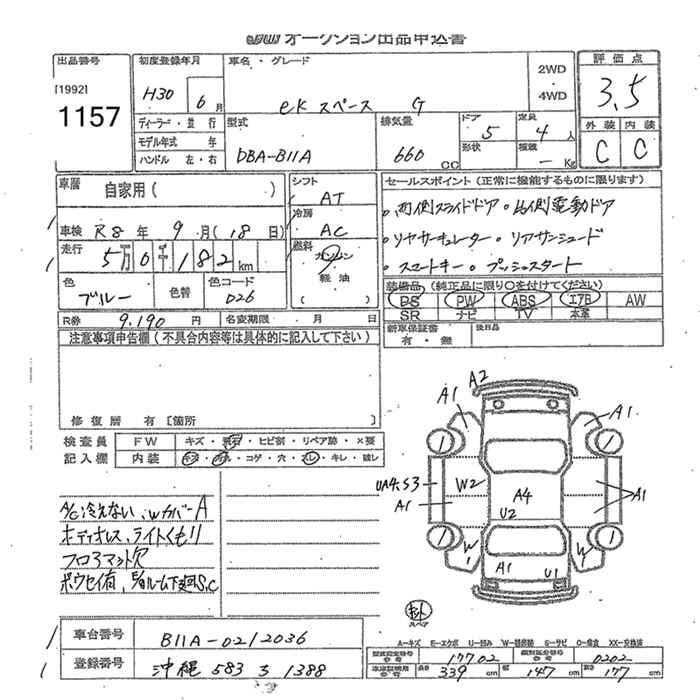 JBW オークション出品申込書
出品番号 初度登録年月 車名・グレード 2WD・4WD 評価点
[1992] 1157 H30 6月 eK スペース G 3.5
ディーラー・並行 型式 排気量 ドア 定員 外装 内装
モデル年式 年 形状 積載
ハンドル 左・右 DBA-B11A 660cc 5 4人 -Kg C C
車歴 自家用( ) シフト AT セールスポイント(正常に機能するものに限ります)
車検 R8年 9月(18日) 冷房 AC 。両側スライドドア。片側電動ドア
走行 5万0千182km 燃料 ガソリン 軽油 。リヤサーキュレーター。リアサンシェード
色 ブルー 色替 色コード D26 。スマートキー。プッシュスタート
装備品(純正品に限り○を付けてください)
PS PW ABS エアB AW
SR ナビ TV 本革
R券 9,190円 名変期限 月 日 新車保証書 有・無 後日品
注意事項申告欄(不具合内容等は具体的に記入して下さい)
修復歴 有[箇所 ]
検査員 FW キズ・飛石・ヒビ割・リペア跡・×要
記入欄 内装 キズ・汚れ・コゲ・穴・スレ・キレ・破レ
A/C冷えない、WカバーA
ホディオレス、ライトくもり
フロアマット欠
ボウセイ有、
下廻S,C
A1 A2 A1
UA4.S3 W2 A4 A1
A1 U2
W1 A1 U1 W1
スペア
A-キズ E-エクボ U-凹み W-補修跡 S-サビ C-腐食 XX-交換済
車台番号 B11A-0212036
型式指定番号 17702 類別区分番号 0202
登録番号 沖縄 583 う 1388
長さ 339cm 幅 147cm 高さ 177cm